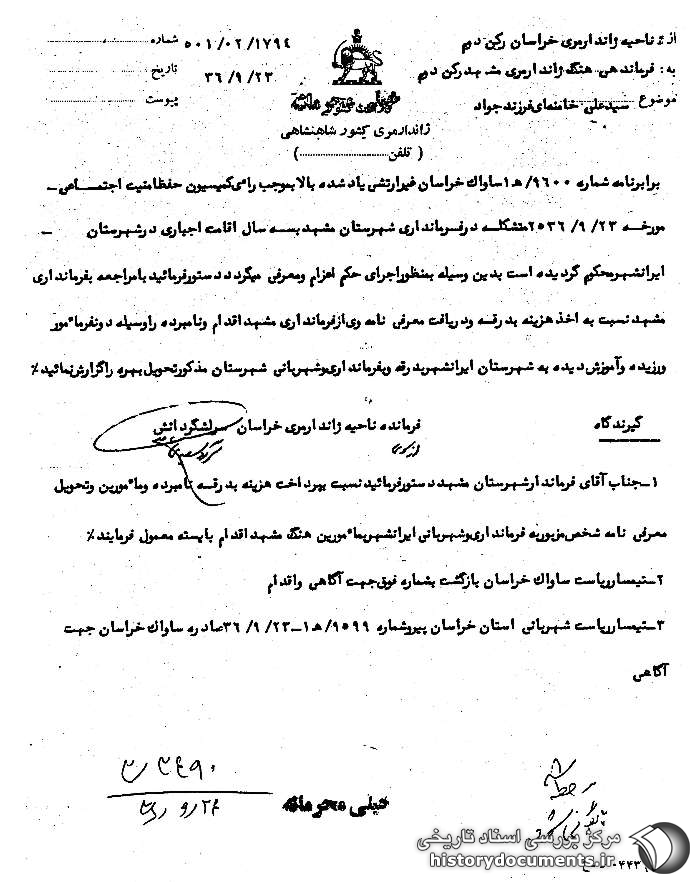 از: ناحیه ژاندارمری خراسان رکن دوم
شماره ۵۰۱/۰۲/۱۷۹۴
به: فرماندهی هنگ ژاندارمری مشهد رکن دوم
تاریخ ۳۶/۹/۲۳
موضوع سیدعلی خامنه‌ای فرزند جواد
پیوست
ژاندارمری کشور شاهنشاهی
(تلفن ....................)
برابر نامه شماره ۹۶۰۰/ه‍۱ ساواک خراسان غیرارتشی یاد شده بالا بموجب رأی کمیسیون حفظ امنیت اجتماعی –
مورخه ۲۵۳۶/۹/۲۳ متشکله در فرمانداری شهرستان مشهد بسه سال اقامت اجباری در شهرستان –
ایرانشهر محکوم گردیده است بدین وسیله بمنظور اجرای حکم اعزام و معرفی میگردد دستور فرمائید با مراجعه بفرمانداری
مشهد نسبت به اخذ هزینه بدرقه و دریافت معرفی نامه وی از فرمانداری مشهد اقدام و نامبرده را وسیله دو نفر مأمور
ورزیده و آموزش دیده به شهرستان ایرانشهر بدرقه و بفرمانداری و شهربانی شهرستان مذکور تحویل بهره را گزارش نمائید٪
فرمانده ناحیه ژاندارمری خراسان سرلشگر دانش
گیرندگان
۱– جناب آقای فرماندار شهرستان مشهد دستور فرمائید نسبت بپرداخت هزینه بدرقه نامبرده و مأمورین و تحویل
معرفی نامه شخص مزبور به فرمانداری و شهربانی ایرانشهر بمأمورین هنگ مشهد اقدام بایسته معمول فرمایند٪
۲– تیمسار ریاست ساواک خراسان بازگشت بشماره فوق جهت آگاهی و اقدام
۳– تیمسار ریاست شهربانی استان خراسان پیرو شماره ۹۵۹۹/ه‍۱–۳۶/۹/۲۳ صادره ساواک خراسان جهت
آگاهی
خیلی محرمانه
مرکز بررسی اسناد تاریخی
historydocuments.ir